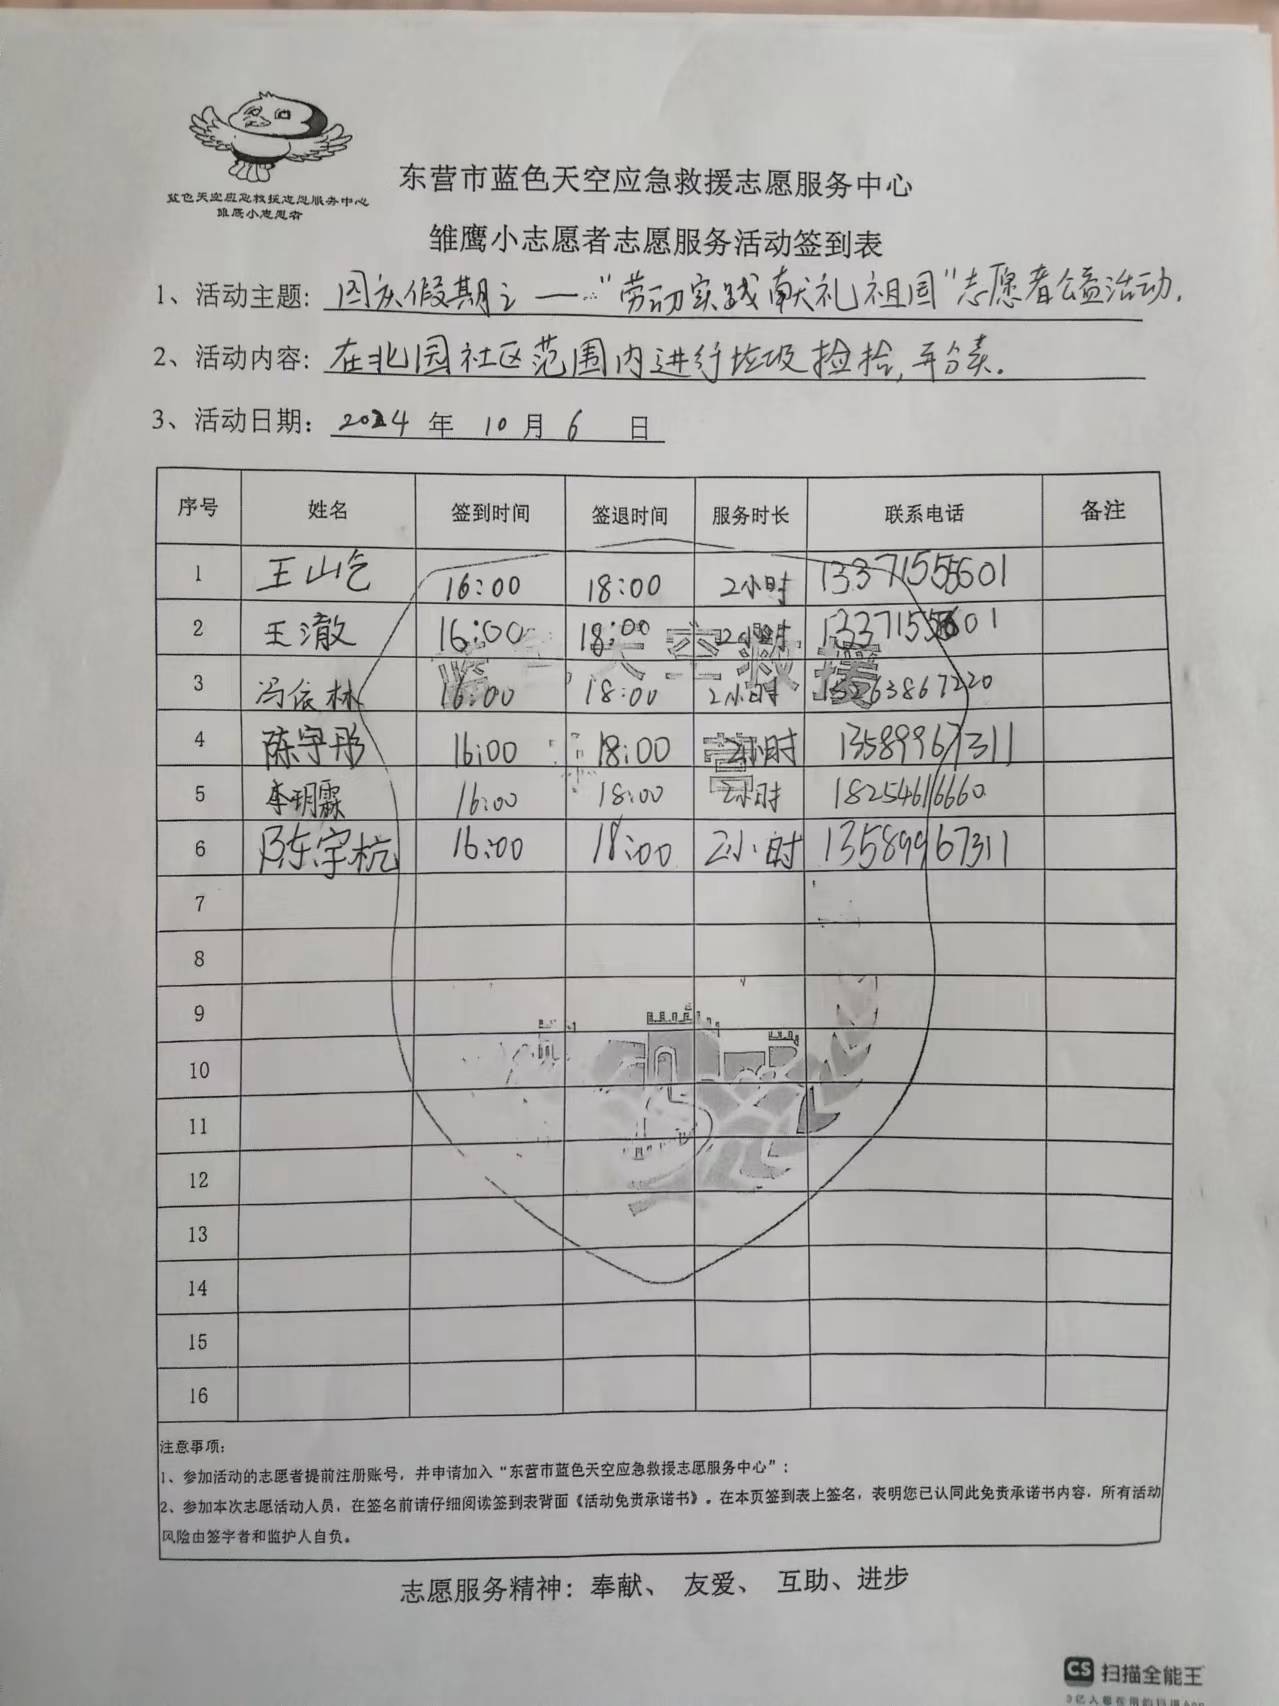 蓝色天空应急救援志愿服务中心
雏鹰小志愿者
东营市蓝色天空应急救援志愿服务中心
雏鹰小志愿者志愿服务活动签到表
1、活动主题: 国庆假期之一"劳动实践献礼祖国"志愿者公益活动.
2、活动内容: 在北园社区范围内进行垃圾捡拾,并分类.
3、活动日期: 2024 年 10 月 6 日
序号 姓名 签到时间 签退时间 服务时长 联系电话 备注
1 王山 16:00 18:00 2小时 13371555601
2 王澈 16:00 18:00 2小时
3 冯依林 16:00 18:00 2小时
4 陈宇彤 16:00 18:00 2小时 13589967311
5 李玥霖 16:00 18:00 2小时 18254616660
6 陈宇杭 16:00 18:00 2小时 13589967311
蓝色天空救援
东营
7
8
9
10
11
12
13
14
15
16
注意事项:
1、参加活动的志愿者提前注册账号，并申请加入“东营市蓝色天空应急救援志愿服务中心”；
2、参加本次志愿活动人员，在签名前请仔细阅读签到表背面《活动免责承诺书》。在本页签到表上签名，表明您已认同此免责承诺书内容，所有活动
风险由签字者和监护人自负。
志愿服务精神：奉献、 友爱、 互助、进步
CS 扫描全能王
3亿人都在用的扫描App